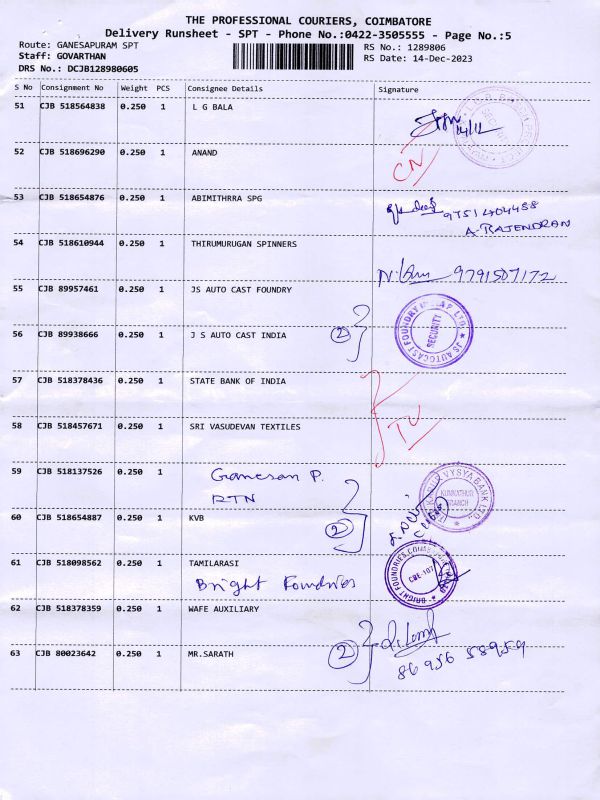 THE PROFESSIONAL COURIERS, COIMBATORE
Delivery Runsheet - SPT - Phone No.:0422-3505555 - Page No.:5
Route: GANESAPURAM SPT
RS No.: 1289806
Staff: GOVARTHAN
RS Date: 14-Dec-2023
DRS No.: DCJB128980605
S No Consignment No Weight PCS Consignee Details Signature
51 CJB 518564838 0.250 1 L G BALA
14/12
52 CJB 518696290 0.250 1 ANAND
CN
53 CJB 518654876 0.250 1 ABIMITHRRA SPG
9751404458
A. RAJENDRAN
54 CJB 518610944 0.250 1 THIRUMURUGAN SPINNERS
9791507172
55 CJB 89957461 0.250 1 JS AUTO CAST FOUNDRY
56 CJB 89938666 0.250 1 J S AUTO CAST INDIA
2
JS AUTOCAST FOUNDRY INDIA P. LTD.
SECURITY
57 CJB 518378436 0.250 1 STATE BANK OF INDIA
58 CJB 518457671 0.250 1 SRI VASUDEVAN TEXTILES
59 CJB 518137526 0.250 1 Ganesan P.
RTN
KARUR VYSYA BANK LTD.
KUNNATHUR
BRANCH
60 CJB 518654887 0.250 1 KVB
2
61 CJB 518098562 0.250 1 TAMILARASI
Bright Foundries
BRIGHT FOUNDRIES, COIMBATORE
CBE-107
62 CJB 518378359 0.250 1 WAFE AUXILIARY
63 CJB 80023642 0.250 1 MR.SARATH
2
86956 58959